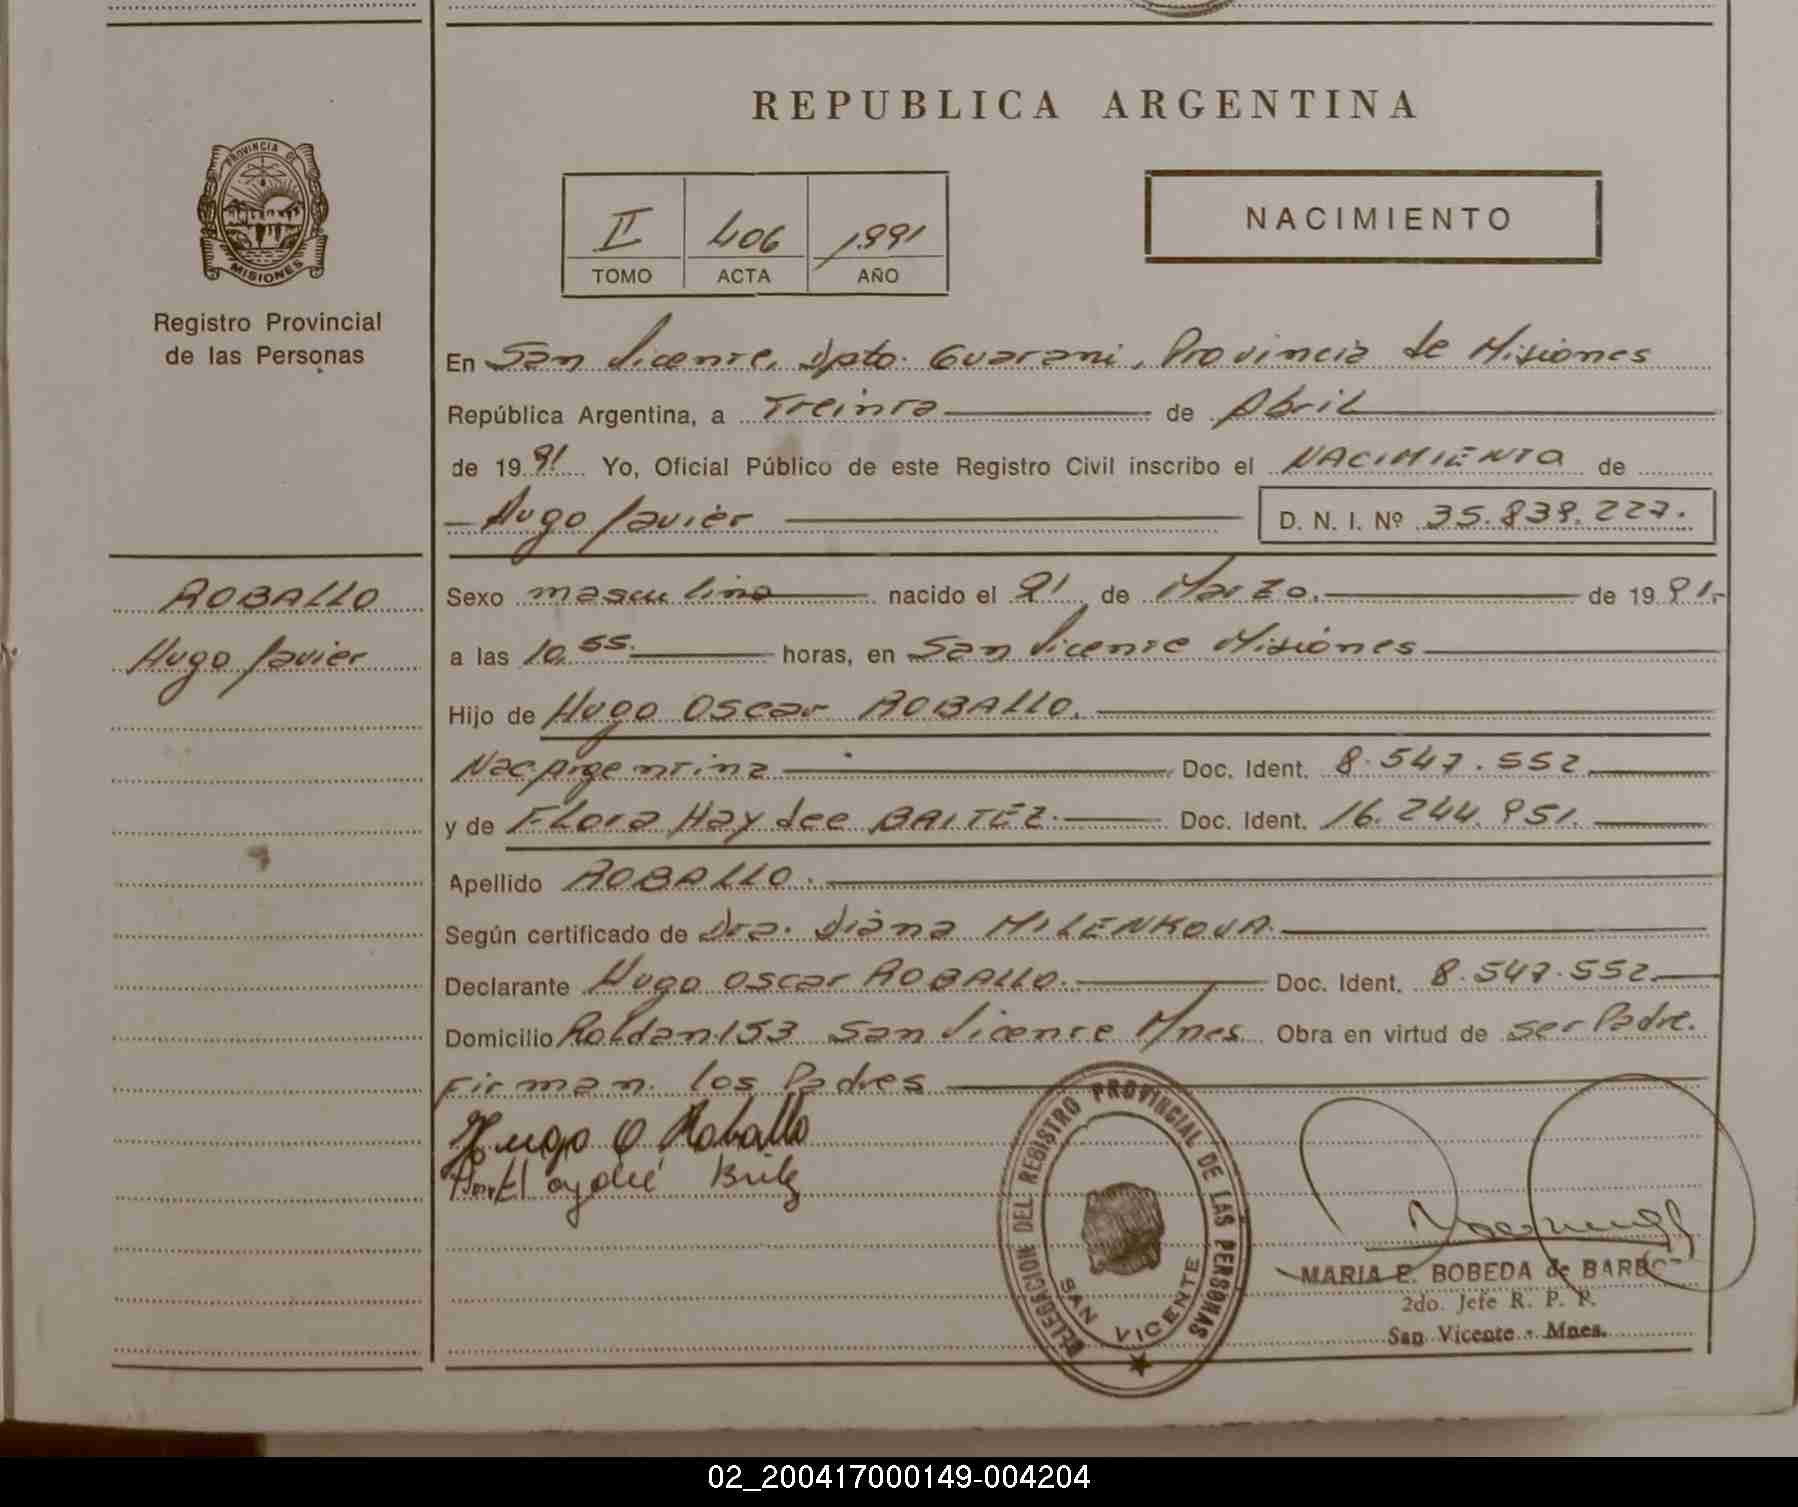 REPUBLICA ARGENTINA
PROVINCIA DE
MISIONES
Registro Provincial
de las Personas
II 406 1991
TOMO ACTA AÑO
NACIMIENTO
En San Vicente, Dpto. Guarani, Provincia de Misiones
República Argentina, a Treinta de Abril
de 1991 Yo, Oficial Público de este Registro Civil inscribo el NACIMIENTO de
Hugo Javier D. N. I. Nº 35.839.227.
ROBALLO
Hugo Javier
Sexo masculino nacido el de Marzo. de 1991.
a las 10,55. horas, en San Vicente Misiones
Hijo de Hugo Oscar ROBALLO.
Nac. Argentina Doc. Ident. 8.547.552
y de Flora Haydee BAITEZ. Doc. Ident. 16.244.951.
Apellido ROBALLO.
Según certificado de Dra. Diana MILENKOVA.
Declarante Hugo Oscar ROBALLO. Doc. Ident. 8.547.552
Domicilio Roldan 153 San Vicente Mnes. Obra en virtud de ser Padre.
Firman los Padres
Hugo O Roballo
DELEGACION DEL REGISTRO PROVINCIAL DE LAS PERSONAS
SAN VICENTE
MARIA E. BOBEDA de
2do. Jefe R. P. P.
San Vicente - Mnes.
02_200417000149-004204